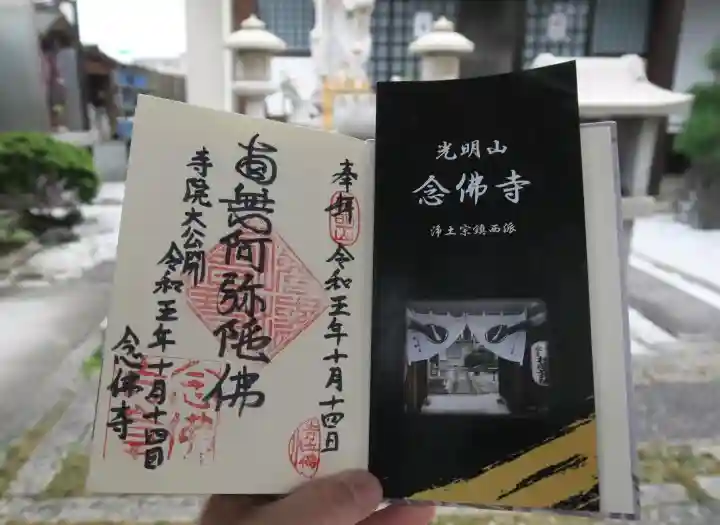 奉拝
令和五年十月十四日
南無阿弥陀佛
寺院大公開
令和五年十月十四日
念佛寺
光明山
念佛寺
浄土宗鎮西派